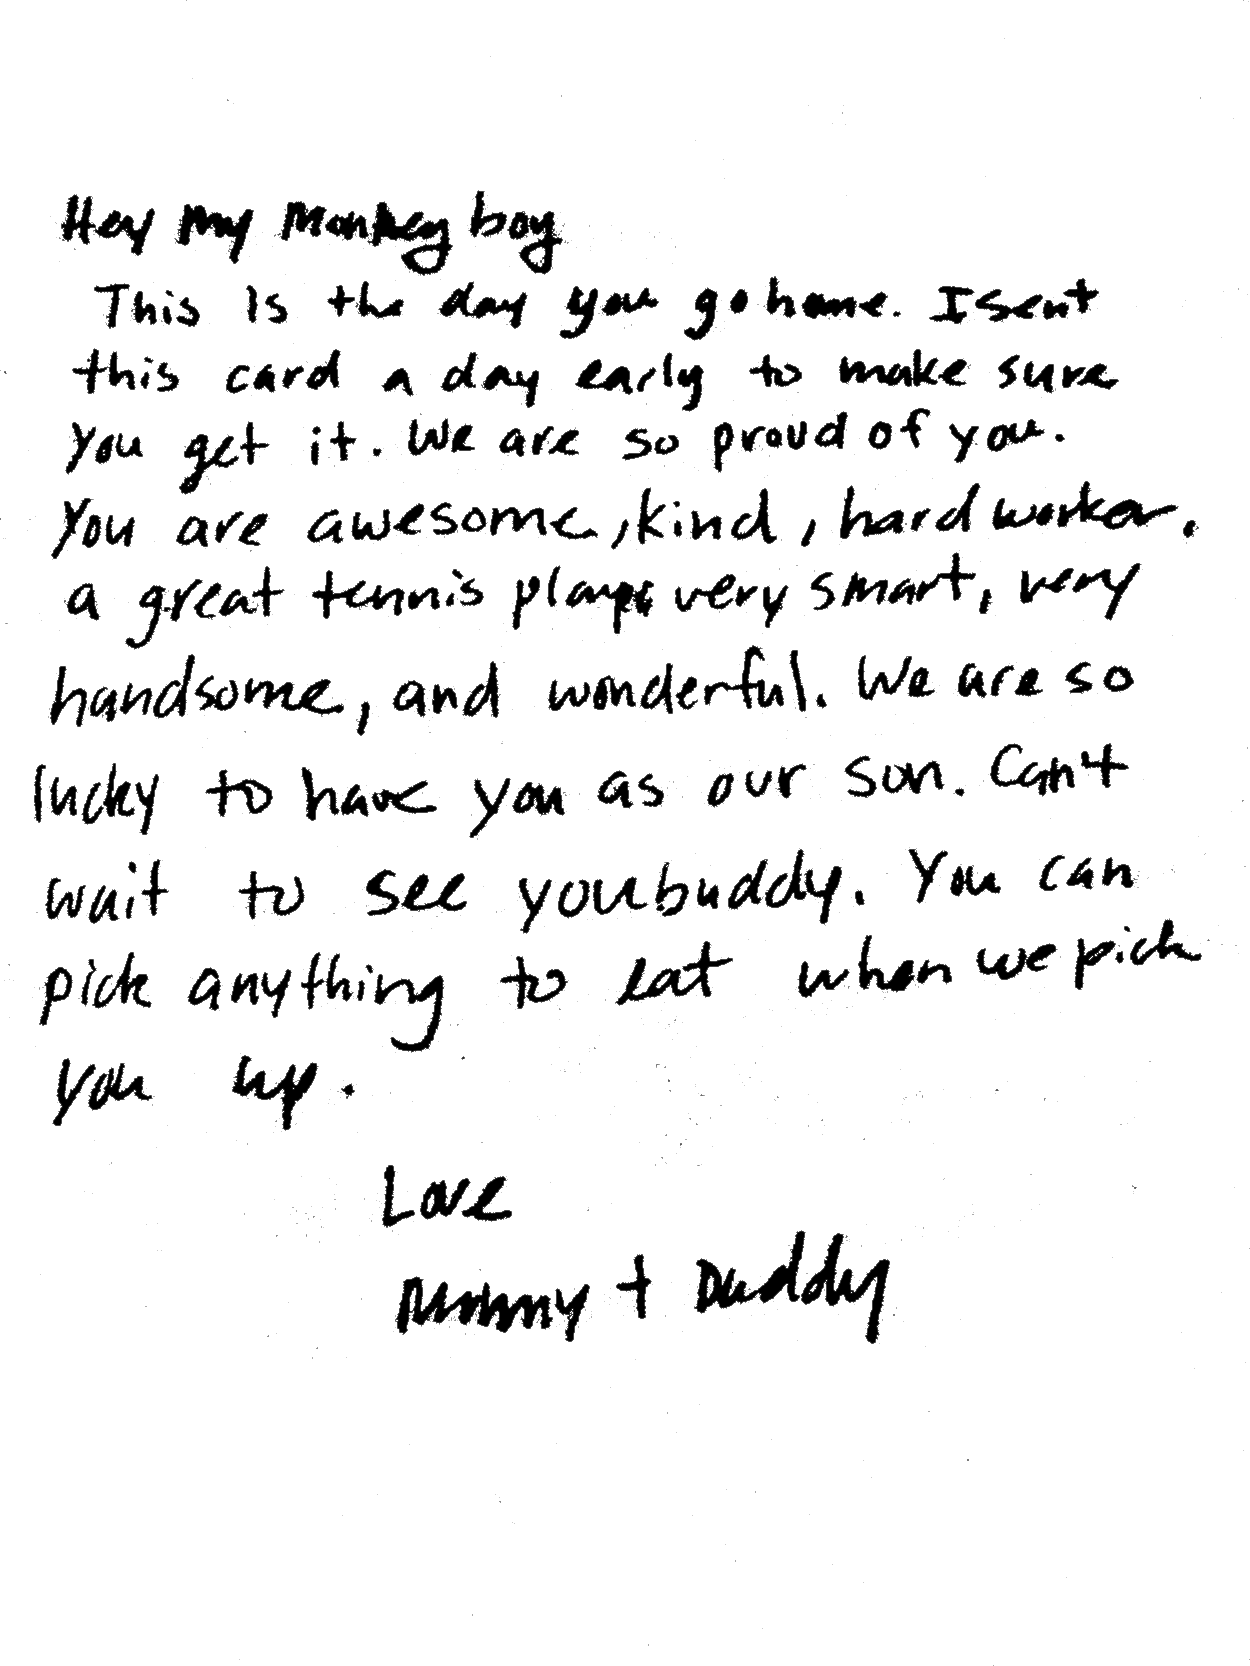 Hey my Monkey boy
This Is the day you go home. I sent
this card a day early to make sure
you get it. We are so proud of you.
You are awesome, kind, hard worker,
a great tennis very smart, very
handsome, and wonderful. We are so
lucky to have you as our son. Can't
wait to see you buddy. You can
pick anything to eat when we pick
you up.
Love
Mommy + Daddy